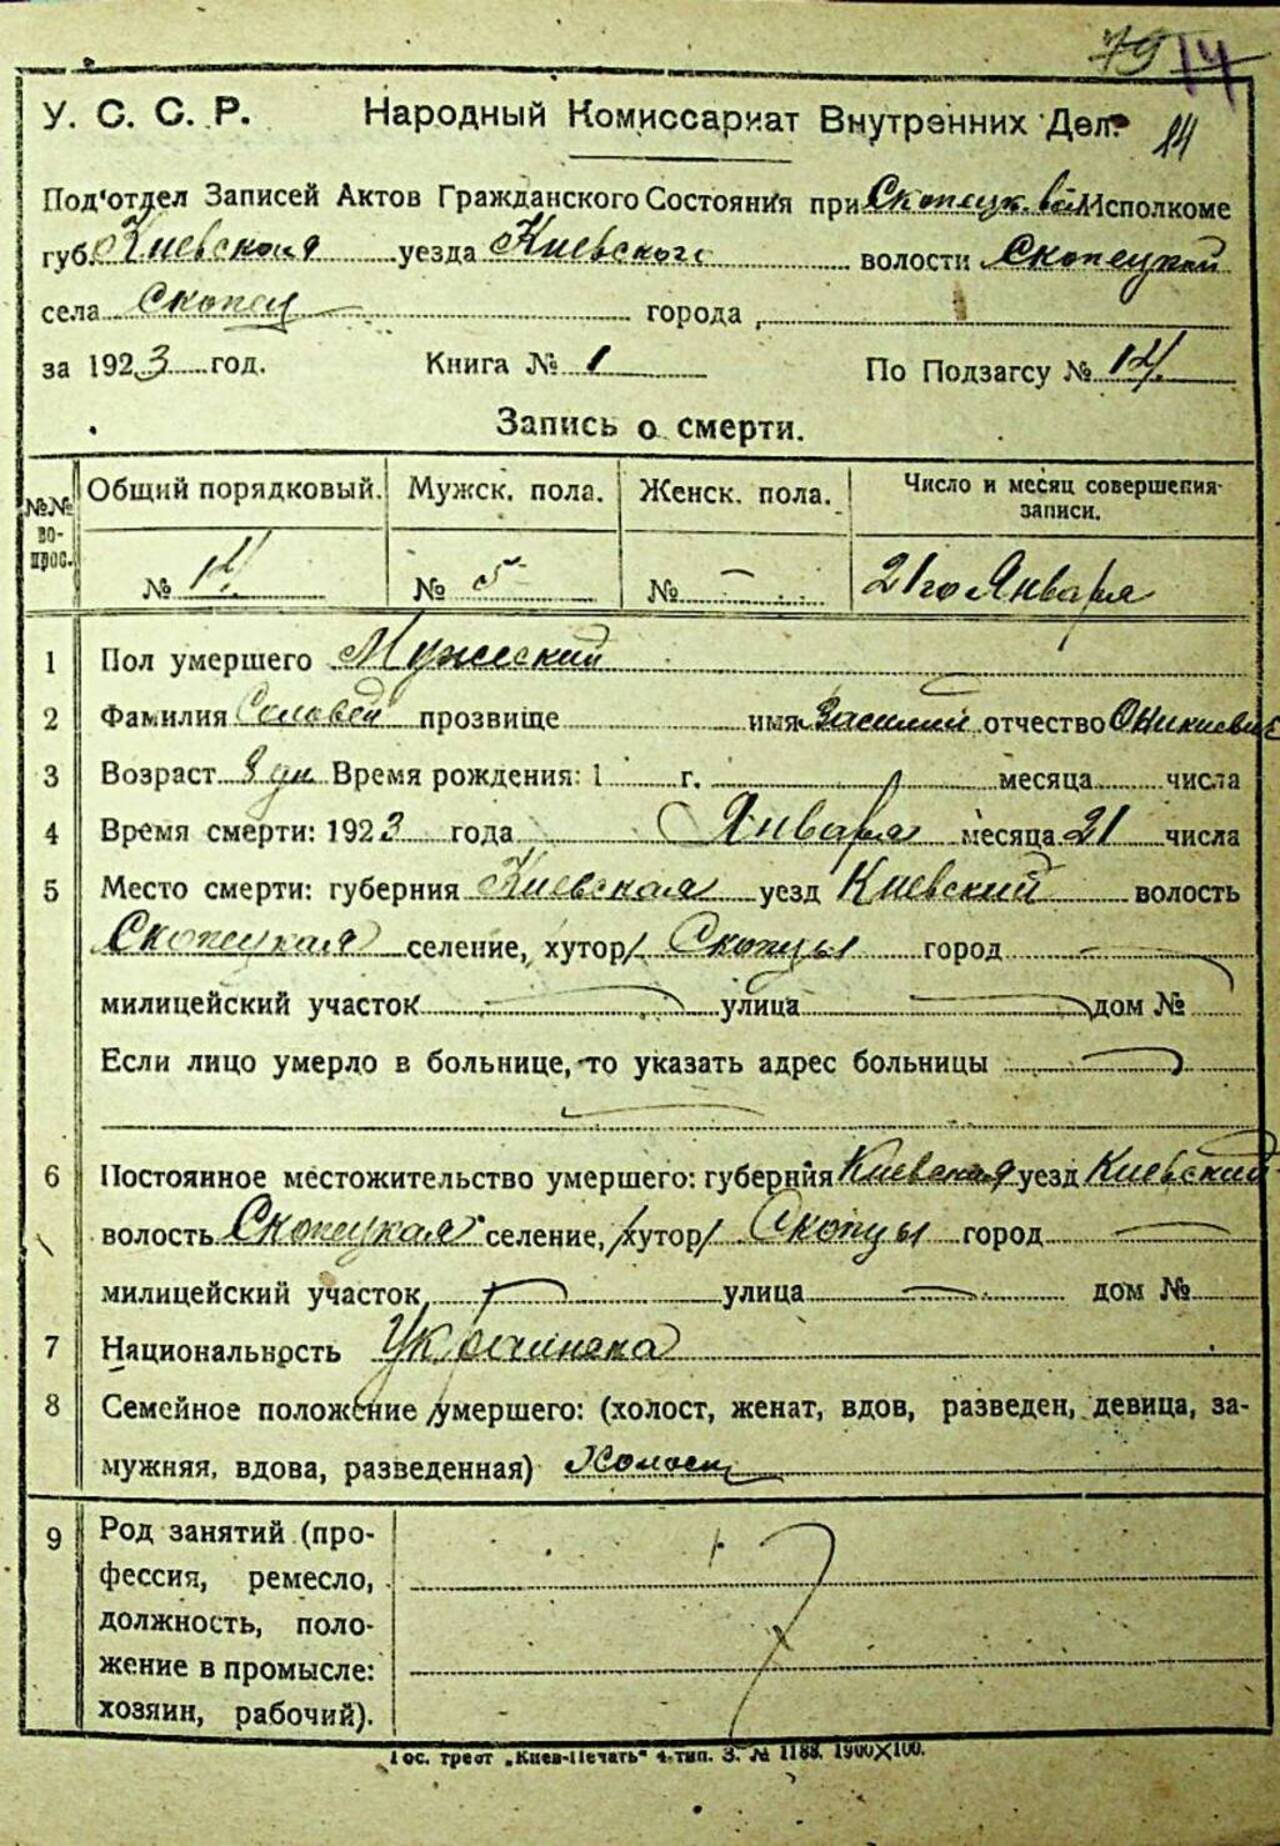 79 14
У. С. С. Р. Народный Комиссариат Внутренних Дел. 14
Под'отдел Записей Актов Гражданского Состояния при Скопецк. Исполкоме
губ. Киевская уезда Киевского волости Скопецкой
села Скопец города
за 1923 год. Книга № 1 По Подзагсу № 14
Запись о смерти.
№№ во-прос. Общий порядковый. Мужск. пола. Женск. пола. Число и месяц совершения записи.
№ 14 № 5 № — 21го Января
1 Пол умершего Мужеский
2 Фамилия Соловей прозвище имя Василий отчество Оникиевич
3 Возраст 8 дн. Время рождения: 1 г. месяца числа
4 Время смерти: 1923 года Января месяца 21 числа
5 Место смерти: губерния Киевская уезд Киевский волость
Скопецкая селение, хутор/ Скопцы город —
милицейский участок — улица — дом №
Если лицо умерло в больнице, то указать адрес больницы —
—
6 Постоянное местожительство умершего: губерния Киевская уезд Киевский
волость Скопецкая селение, /хутор/ Скопцы город —
милицейский участок — улица — дом №
7 Национальность Украинска
8 Семейное положение умершего: (холост, женат, вдов, разведен, девица, за-
мужняя, вдова, разведенная) Холост
9 Род занятий (про-
фессия, ремесло,
должность, поло-
жение в промысле:
хозяин, рабочий).
Гос. трест „Киев-Печать" 4 тип. З. № 1188. 1900×100.